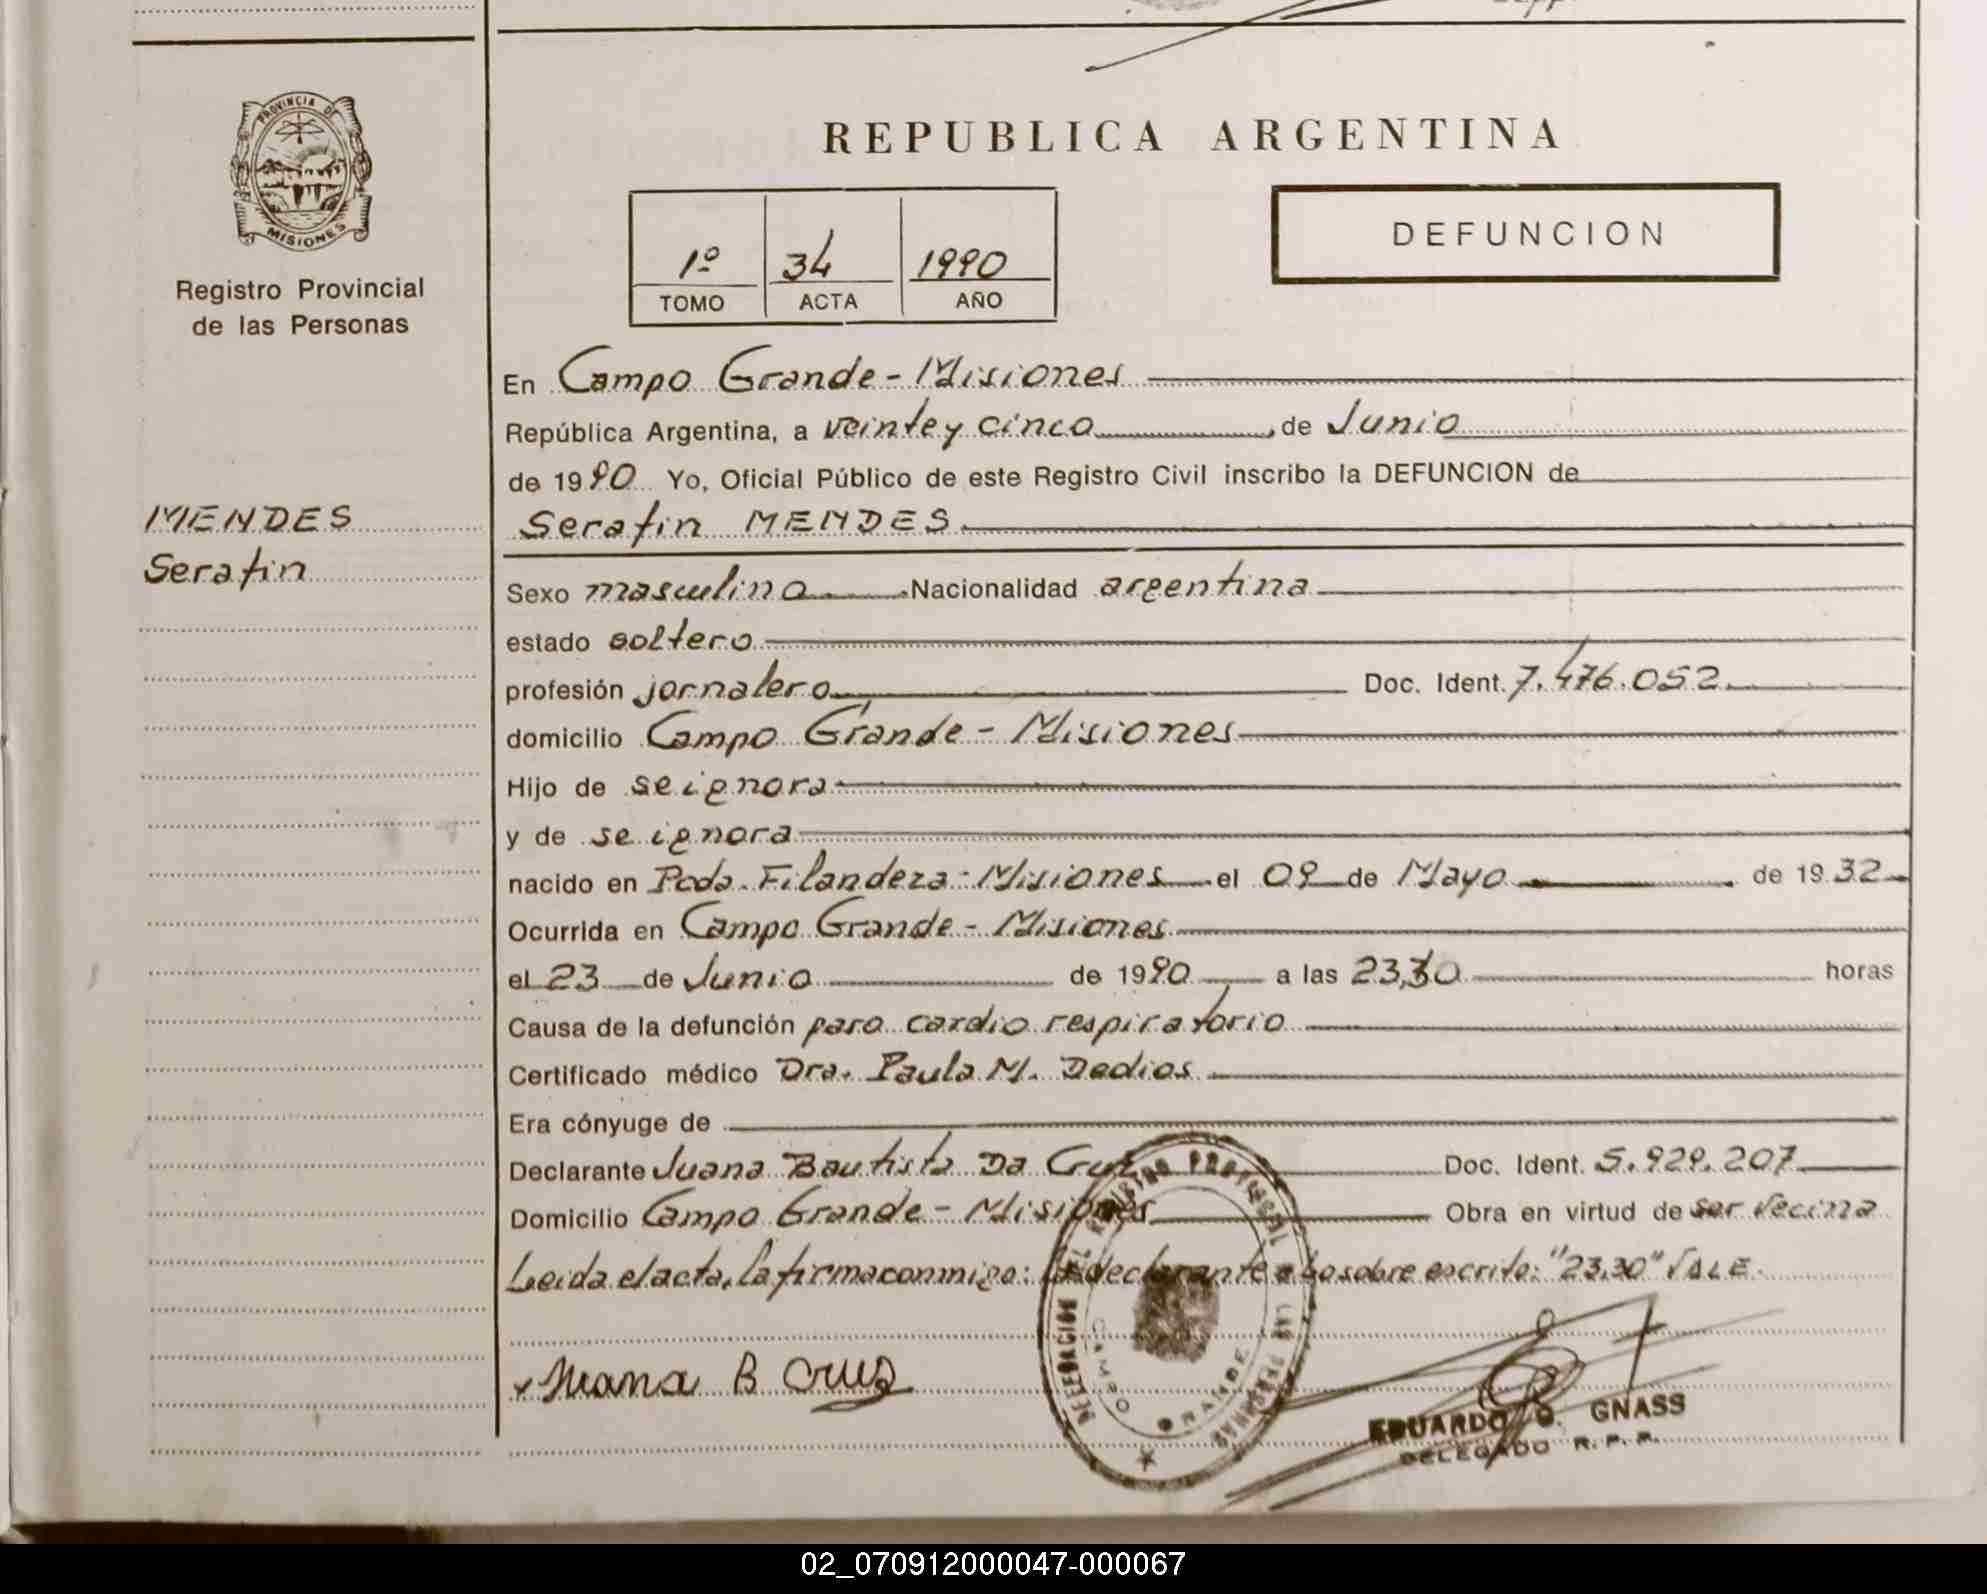 PROVINCIA DE
MISIONES
Registro Provincial
de las Personas
MENDES
Serafin
REPUBLICA ARGENTINA
1º 34 1990
TOMO ACTA AÑO
DEFUNCION
En Campo Grande - Misiones
República Argentina, a veinte y cinco, de Junio
de 1990 Yo, Oficial Público de este Registro Civil inscribo la DEFUNCION de
Serafin MENDES
Sexo masculino Nacionalidad argentina
estado soltero
profesión jornalero Doc. Ident. 7.476.052
domicilio Campo Grande - Misiones
Hijo de se ignora
y de se ignora
nacido en Pcda. Filandera - Misiones el 09 de Mayo de 1932
Ocurrida en Campo Grande - Misiones
el 23 de Junio de 1990 a las 23,30 horas
Causa de la defunción paro cardio respiratorio
Certificado médico Dra. Paula M. Dedios
Era cónyuge de
Declarante Juana Bautista Da Cruz Doc. Ident. 5.929.207
Domicilio Campo Grande - Misiones Obra en virtud de ser vecina
Leida el acta, la firma conmigo: La declarante Lo sobre escrito: "23,30" VALE
Juana B Cruz
DELEGACION DEL REGISTRO PROVINCIAL DE LAS PERSONAS
CAMPO GRANDE
EDUARDO GNASS
DELEGADO R.P.P.
02_070912000047-000067